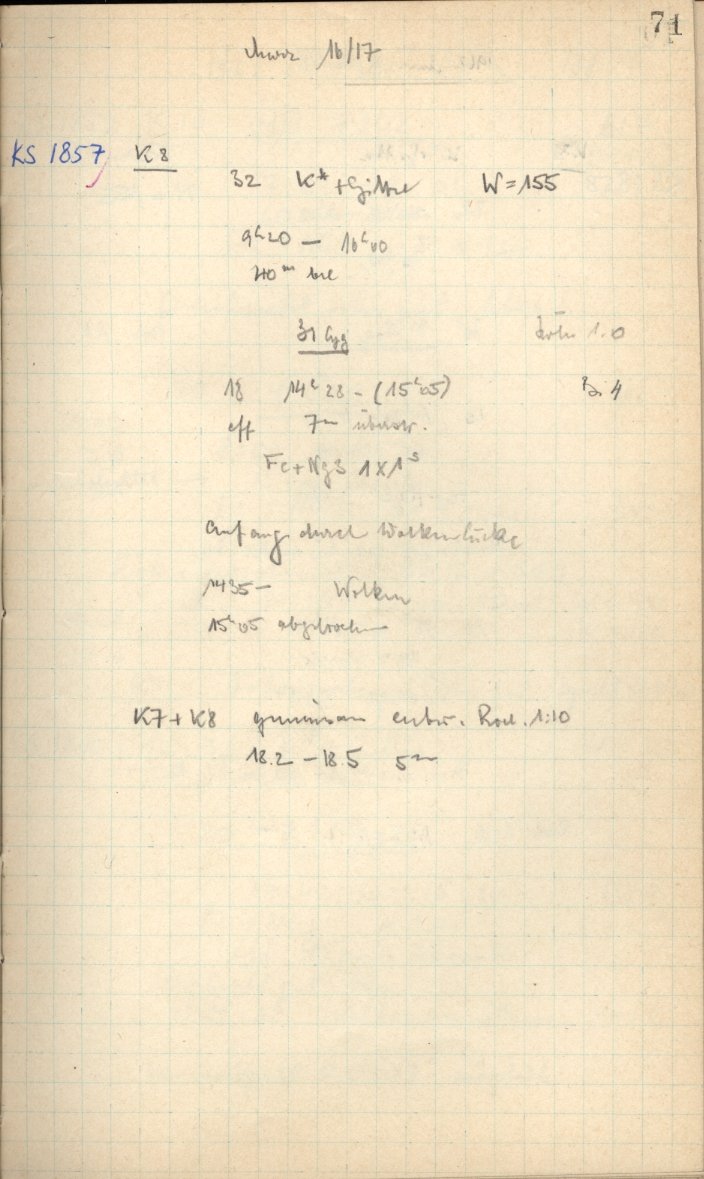 71
März 16/17
KS 1857 K8
32 K* + Gitter W=155
9h20 — 16h00
31 Cyg
1.0
18 14h 28 - (15h05) 4
eff 7m
Fe+ 1x1s
Anfang durch Wolkenlücke
1435 — Wolken
15h05 abgebrochen
K7+K8 gemeinsam entw. Rod. 1:10
18.2 — 18.5 5m